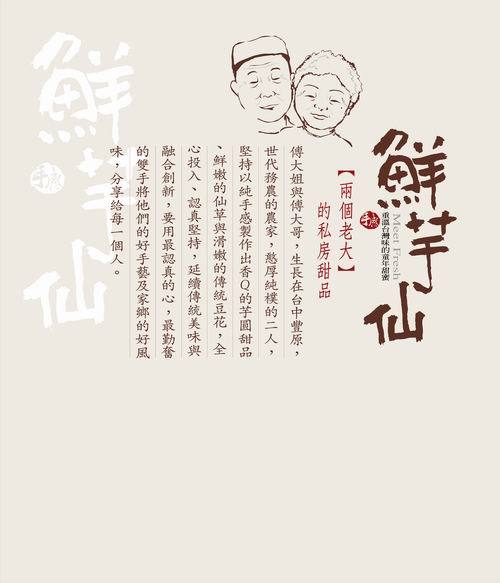 鮮芋仙
手感
Meet Fresh
重溫台灣味的童年甜蜜
【兩個老大】
的私房甜品
傅大姐與傅大哥，生長在台中豐原，
世代務農的農家，憨厚純樸的二人，
堅持以純手感製作出香Q的芋圓甜品
、鮮嫩的仙草與滑嫩的傳統豆花，全
心投入、認真堅持，延續傳統美味與
融合創新，要用最認真的心，最勤奮
的雙手將他們的好手藝及家鄉的好風
味，分享給每一個人。
鮮芋仙
手感